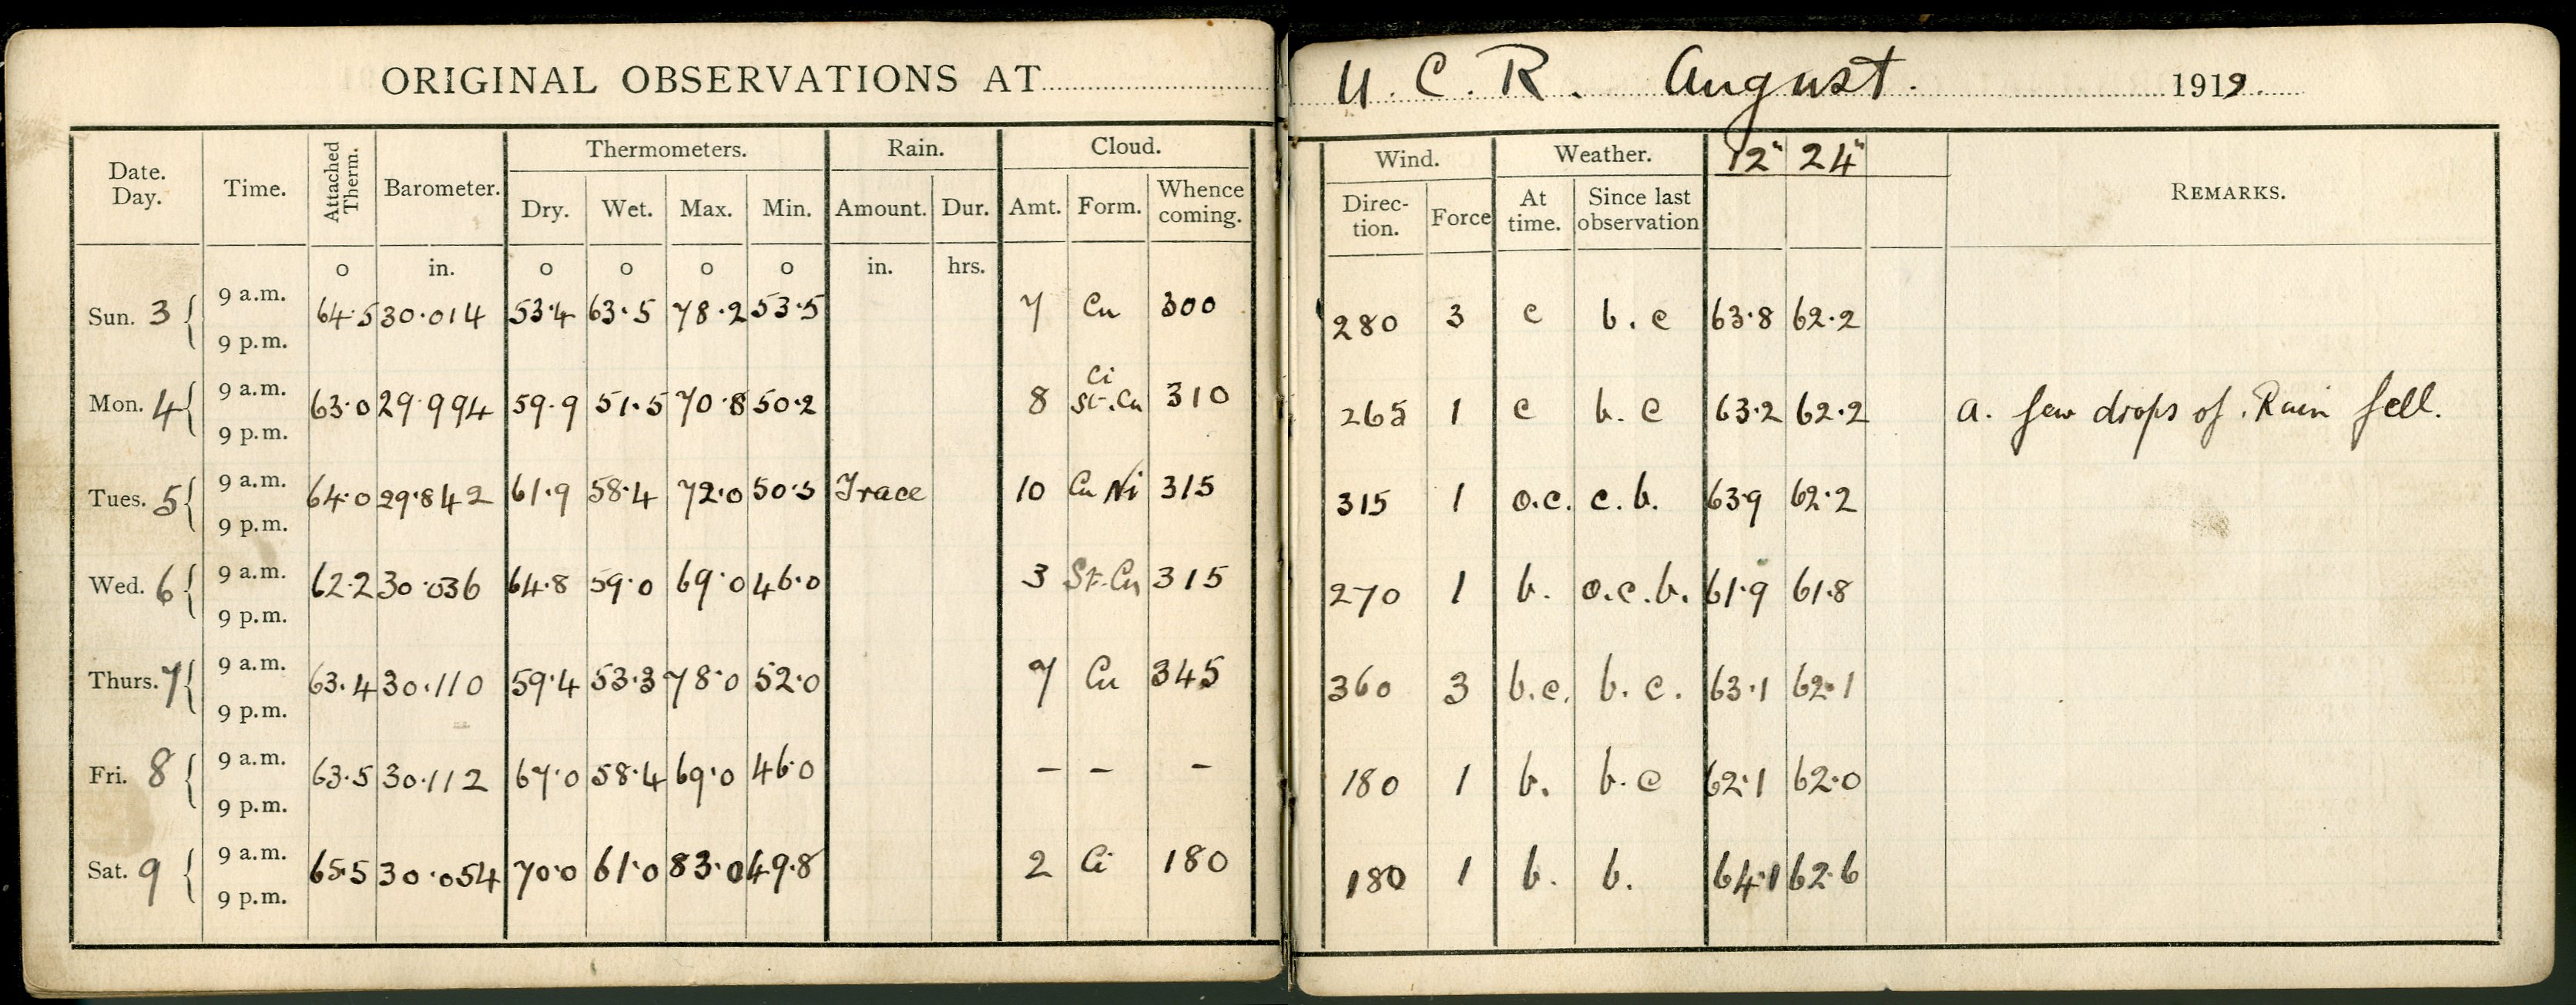 ORIGINAL OBSERVATIONS AT U. C. R. August. 1919.
Date. Day. Time. Attached Therm. Barometer. Thermometers. Rain. Cloud. Wind. Weather. 12" 24" REMARKS.
Dry. Wet. Max. Min. Amount. Dur. Amt. Form. Whence coming. Direc-tion. Force At time. Since last observation
o in. o o o o in. hrs.
Sun. 3 { 9 a.m. 64.5 30.014 53.4 63.5 78.2 53.5 7 Cu 300 280 3 c b.c 63.8 62.2
9 p.m.
Mon. 4 { 9 a.m. 63.0 29.994 59.9 51.5 70.8 50.2 8 Ci St.Cu 310 265 1 c b.c 63.2 62.2 a. few drops of. Rain fell.
9 p.m.
Tues. 5 { 9 a.m. 64.0 29.842 61.9 58.4 72.0 50.5 Trace 10 Cu Ni 315 315 1 o.c. c.b. 63.9 62.2
9 p.m.
Wed. 6 { 9 a.m. 62.2 30.036 64.8 59.0 69.0 46.0 3 St-Cu 315 270 1 b. o.c.b. 61.9 61.8
9 p.m.
Thurs. 7 { 9 a.m. 63.4 30.110 59.4 53.3 78.0 52.0 7 Cu 345 360 3 b.c. b.c. 63.1 62.1
9 p.m.
Fri. 8 { 9 a.m. 63.5 30.112 67.0 58.4 69.0 46.0 – – – 180 1 b. b.c 62.1 62.0
9 p.m.
Sat. 9 { 9 a.m. 65.5 30.054 70.0 61.0 83.0 49.8 2 Ci 180 180 1 b. b. 64.1 62.6
9 p.m.